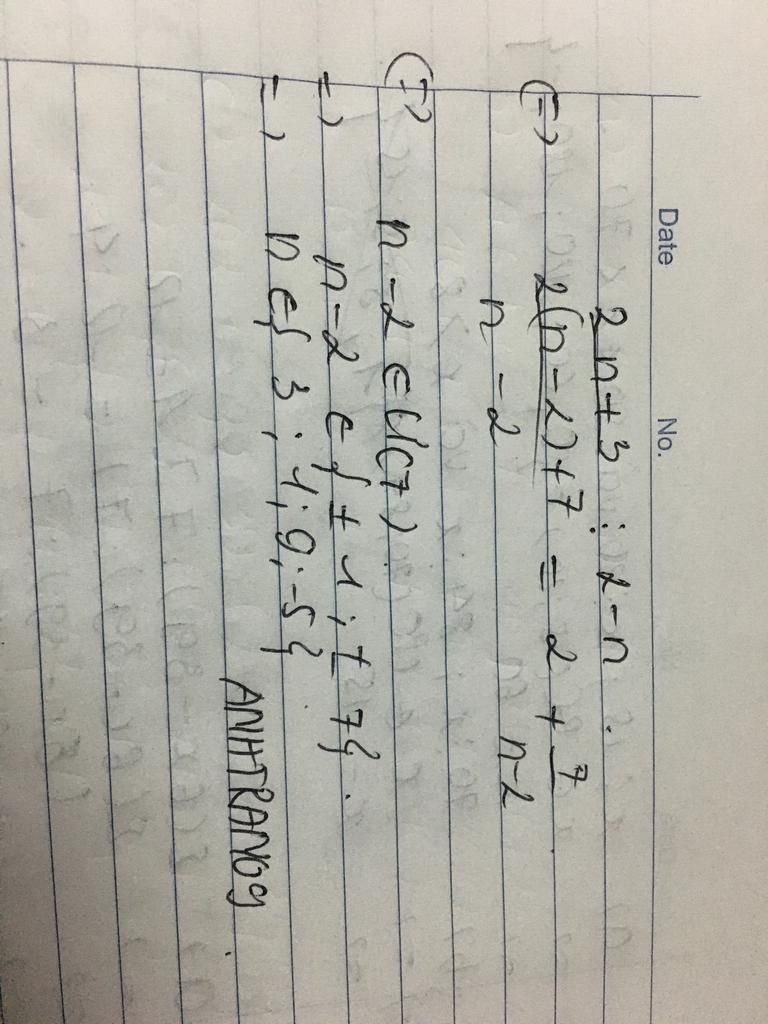 Date No.
2n+3 ⋮ 2-n.
(=) 2(n-2)+7 = 2 + 7
n-2 n-2
(=) n-2 ∈ Ư(7)
=) n-2 ∈ { ± 1 ; ± 7 }.
=) n ∈ { 3 ; 1 ; 9 ; -5 }
ANHTRANG9.